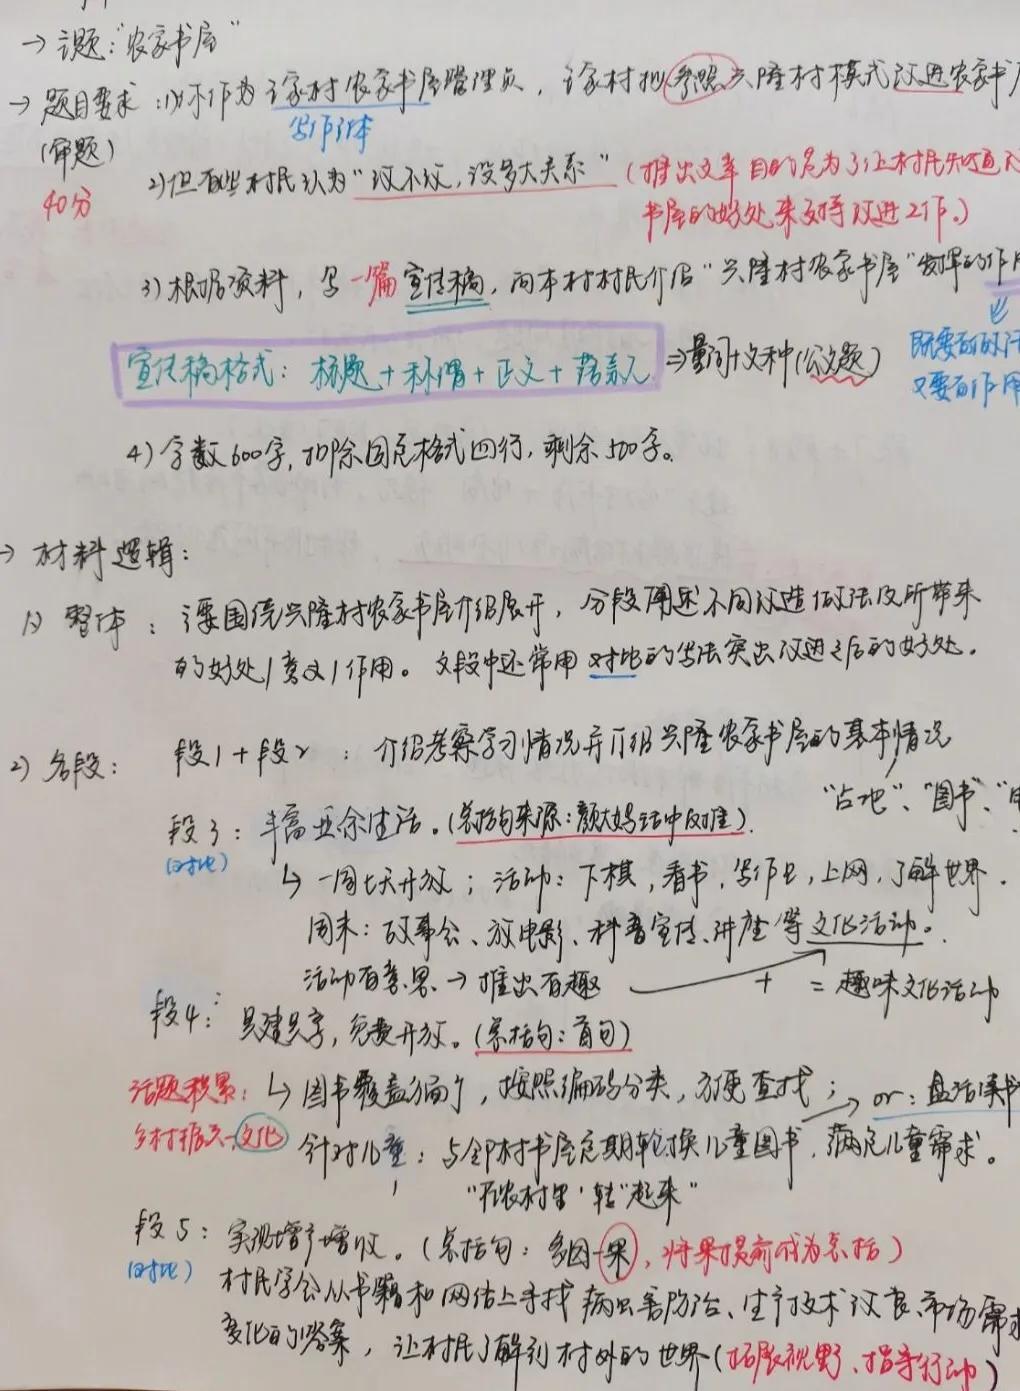 → 话题："农家书屋"
→ 题目要求：1)你作为许家村农家书屋管理员，许家村拟参照兴隆村模式改进农家书
(审题)
写作主体
40分
2)但有些村民认为"改不改，没多大关系"(推出文章目的是为了让村民知道
书屋的好处来支持改进工作。)
3)根据资料，写一篇宣传稿，向本村村民介绍"兴隆村农家书屋"发挥的作用
既要有做法
又要有作用
宣传稿格式：标题＋称谓＋正文＋落款 ⇒量词＋文种(公文题)
4)字数600字，扣除固定格式四行，剩余500字。
→材料逻辑：
1)整体：主要围绕兴隆村农家书屋介绍展开，分段阐述不同改造做法及所带来
的好处/意义/作用。文段中还常用对比的写法突出改进之后的好处。
2)各段：段1＋段2：介绍考察学习情况并介绍兴隆农家书屋的基本情况
"占地"、"图书"、
段3：丰富业余生活。(总括句来源：颜大妈话中反推)
(对比)
↳一周七天开放；活动：下棋，看书，写作业，上网，了解世界。
周末：故事会、放电影、科普宣传、讲座等文化活动。
活动有意思→推出有趣 ＋ ＝趣味文化活动
段4：共建共享，免费开放。(总括句：首句)
话题积累：↳图书覆盖 ，按照编码分类，方便查找；→or：盘活读书
乡村振兴-文化 针对儿童：与邻村书屋定期轮换儿童图书，满足儿童需求。
"在农村里'转'起来"
段5：实现增产增收。(总括句：多因一果，将果提前成为总括)
(对比) 村民学会从书籍和网络上寻找病虫害防治、生产技术改良、市场需求
变化的答案，让村民了解到村外的世界(拓展视野、指导行动)